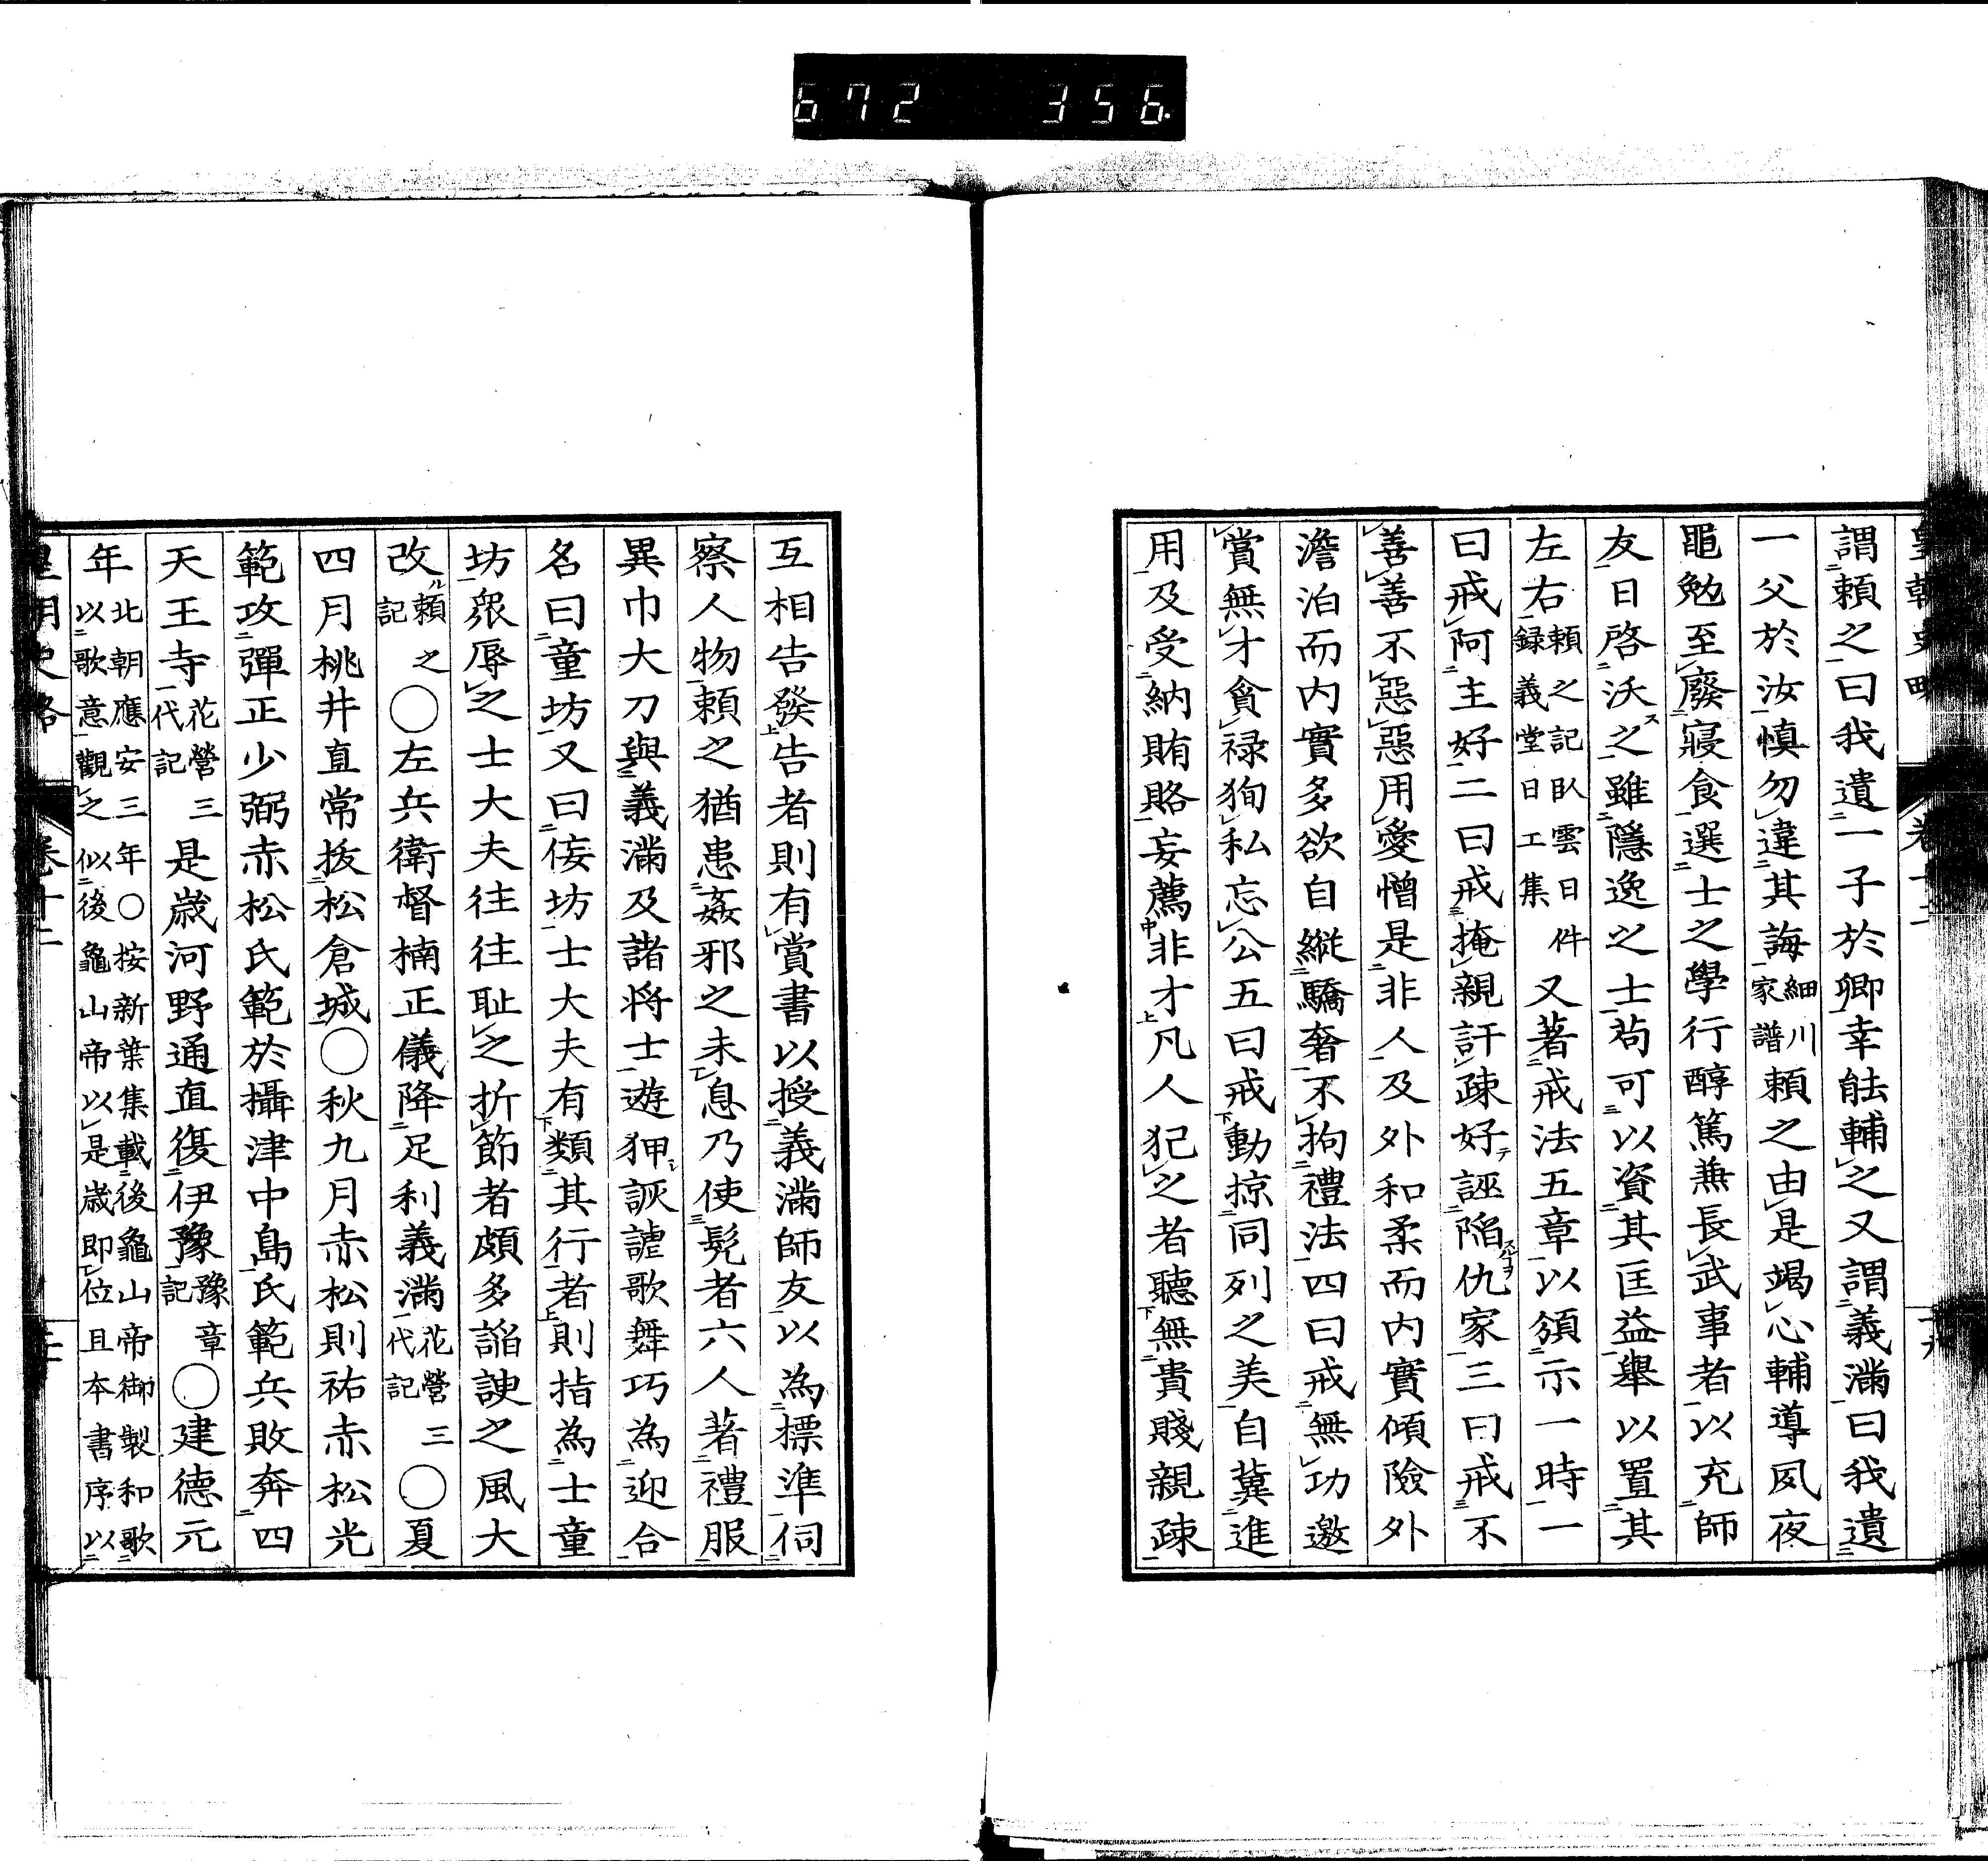 672 356
謂頼之曰我遺一子於卿幸能輔之又謂義滿曰我遺
一父於汝慎勿違其誨細川家譜頼之由是竭心輔導夙夜
黽勉至廢寢食選士之學行醇篤兼長武事者以充師
友日啓沃之雖隱逸之士苟可以資其匡益舉以置其
左右頼之記臥雲日件録義堂日工集又著戒法五章以頒示一時一
曰戒阿主好二曰戒掩親訐疎好誣陷仇家三曰戒不
善善不惡惡用愛憎是非人及外和柔而内實傾險外
澹泊而内實多欲自縱驕奢不拘禮法四曰戒無功邀
賞無才貪禄狥私忘公五曰戒動掠同列之美自冀進
用及受納賄賂妄薦非才凡人犯之者聽無貴賤親疎
互相告發告者則有賞書以授義滿師友以為標準伺
察人物頼之猶患姦邪之未息乃使髡者六人著禮服
異巾大刀與義滿及諸将士遊狎詼謔歌舞巧為迎合
名曰童坊又曰侫坊士大夫有類其行者則指為士童
坊衆辱之士大夫往往耻之折節者頗多諂諛之風大
改頼之記○左兵衛督楠正儀降足利義滿花營三代記○夏
四月桃井直常拔松倉城○秋九月赤松則祐赤松光
範攻彈正少弼赤松氏範於攝津中島氏範兵敗奔四
天王寺花營三代記是歲河野通直復伊豫豫章記○建德元
年北朝應安三年○按新葉集載後龜山帝御製和歌以歌意觀之似後龜山帝以是歲即位且本書序以
皇朝史略 卷十二